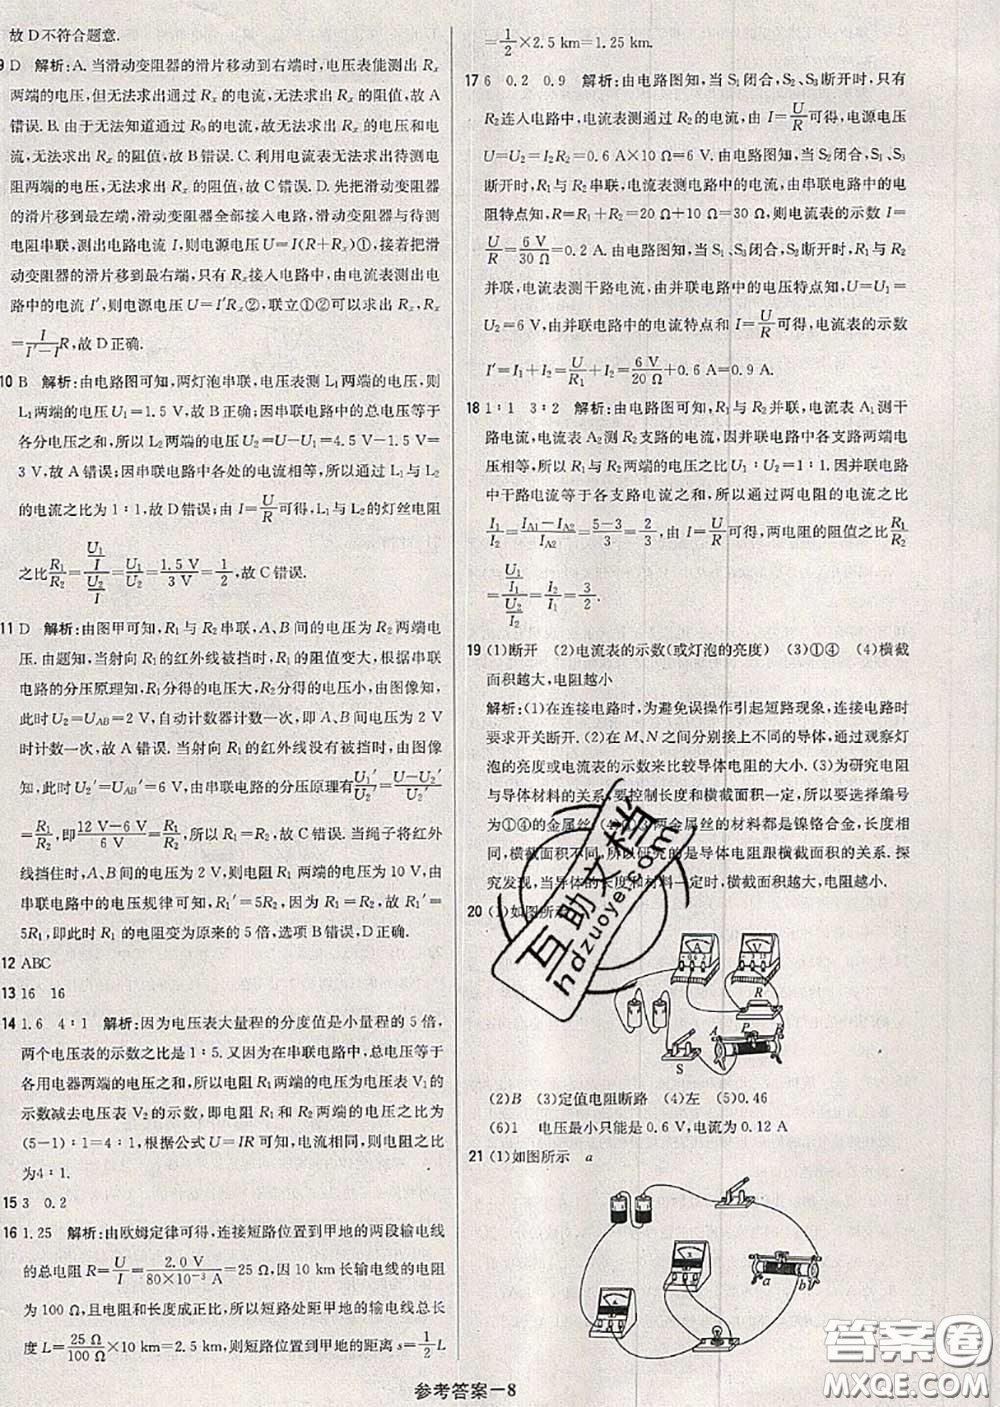 故D不符合题意.
9 D 解析:A.当滑动变阻器的滑片移动到右端时,电压表能测出Rₓ
两端的电压,但无法求出通过Rₓ的电流,无法求出Rₓ的阻值,故A
错误.B.由于无法知道通过R₀的电流,故无法求出Rₓ的电压和电
流,无法求出Rₓ的阻值,故B错误.C.利用电流表无法求出待测电
阻两端的电压,无法求出Rₓ的阻值,故C错误.D.先把滑动变阻器
的滑片移到最左端,滑动变阻器全部接入电路,滑动变阻器与待测
电阻串联,测出电路电流I,则电源电压U=I(R+Rₓ)①,接着把滑
动变阻器的滑片移到最右端,只有Rₓ接入电路,由电流表测出电
路中的电流I′,则电源电压U=I′Rₓ②,联立①②可以求出Rₓ
=I/(I′-I)R,故D正确.
10 B 解析:由电路图可知,两灯泡串联,电压表测L₁两端的电压,则
L₁两端的电压U₁=1.5 V,故B正确;因串联电路中的总电压等于
各分电压之和,所以L₂两端的电压U₂=U-U₁=4.5 V-1.5 V=
3 V,故A错误;因串联电路中各处的电流相等,所以通过L₁与L₂
的电流之比为1∶1,故D错误;由I=U/R可得,L₁与L₂的灯丝电阻
之比R₁/R₂=(U₁/I)/(U₂/I)=U₁/U₂=1.5 V/3 V=1/2,故C错误.
11 D 解析:由图甲可知,R₁与R₂串联,A、B间的电压为R₂两端电
压.由题知,当射向R₁的红外线被挡时,R₁的阻值变大,根据串联
电路的分压原理知,R₁分得的电压大,R₂分得的电压小,由图像知,
此时U₂=U_AB=2 V,自动计数器计数一次,即A、B间电压为2 V
时计数一次,故A错误.当射向R₁的红外线没有被挡时,由图像
知,此时U₂′=U_AB′=6 V,由串联电路的分压原理有U₁′/U₂′=(U-U₂′)/U₂′
=R₁/R₂,即(12 V-6 V)/6 V=R₁/R₂,所以R₁=R₂,故C错误.当绳子将红外
线挡住时,A、B间的电压为2 V,则此时R₁两端的电压为10 V,由
串联电路中的电压规律可知R₁′=5R₂,因为R₁=R₂,所以R₁′=
5R₁,即此时R₁的电阻变为原来的5倍,选项B错误,D正确.
12 ABC
13 16 16
14 1.6 4∶1 解析:因为电压表大量程的分度值是小量程的5倍,
两个电压表的示数之比是1∶5.又因为在串联电路中,总电压等于
各用电器两端的电压之和,所以电阻R₁两端的电压等于电压表V₁的
示数减去电压表V₂的示数,即电阻R₁和R₂两端的电压之比为
(5-1)∶1=4∶1,根据公式U=IR可知,电流相同,则电阻之比
为4∶1.
15 3 0.2
16 1.25 解析:由欧姆定律可得,连接短路位置到甲地的两段输电线
的总电阻R=U/I=2.0 V/(80×10⁻³ A)=25 Ω,因10 km长输电线的电阻
为100 Ω,且电阻和长度成正比,所以短路处距甲地的输电线总长
度L=25 Ω/100 Ω×10 km=2.5 km,则短路位置到甲地的距离s=1/2L
=1/2×2.5 km=1.25 km.
17 6 0.2 0.9 解析:由电路图知,当S₁闭合,S₂、S₃断开时,只有
R₂连入电路中,电流表测电路中的电流,由I=U/R可得,电源电压
U=U₂=I₂R₂=0.6 A×10 Ω=6 V.由电路图知,当S₂闭合,S₁、S₃
断开时,R₁与R₂串联,电流表测电路中的电流,由串联电路中的电
阻特点知,R=R₁+R₂=20 Ω+10 Ω=30 Ω,则电流表的示数I=
U/R=6 V/30 Ω=0.2 A.由电路图知,当S₁、S₃闭合,S₂断开时,R₁与R₂
并联,电流表测干路电流,由并联电路中的电压特点知,U₁=U₂=
U=6 V,由并联电路中的电流特点和I=U/R可得,电流表的示数
I′=I₁+I₂=U/R₁+I₂=6 V/20 Ω+0.6 A=0.9 A.
18 1∶1 3∶2 解析:由电路图可知,R₁与R₂并联,电流表A₁测干
路电流,电流表A₂测R₂支路的电流,因并联电路中各支路两端电
压相等,所以R₁与R₂两端的电压之比U₁∶U₂=1∶1.因并联电路
中干路电流等于各支路电流之和,所以通过两电阻的电流之比
I₁/I₂=(I_A1-I_A2)/I_A2=(5-3)/3=2/3,由I=U/R可得,两电阻的阻值之比R₁/R₂
=(U₁/I₁)/(U₂/I₂)=I₂/I₁=3/2.
19 (1)断开 (2)电流表的示数(或灯泡的亮度) (3)①④ (4)横截
面积越大,电阻越小
解析:(1)在连接电路时,为避免误操作引起短路现象,连接电路时
要求开关断开.(2)在M、N之间分别接上不同的导体,通过观察灯
泡的亮度或电流表的示数来比较导体电阻的大小.(3)为研究电阻
与导体材料的关系,要控制长度和横截面积一定,所以要选择编号
为①④的金属丝.(4)①②两金属丝的材料都是镍铬合金,长度相
同,横截面积不同,所以研究的是导体电阻跟横截面积的关系.探
究发现,当导体的长度和材料一定时,横截面积越大,电阻越小.
20 (1)如图所示
A V
R
S A P B
(2)B (3)定值电阻断路 (4)左 (5)0.46
(6)1 电压最小只能是0.6 V,电流为0.12 A
21 (1)如图所示 a
a b
互助文档
hdzuoye.com
答案圈
MXQE.COM
参考答案—8